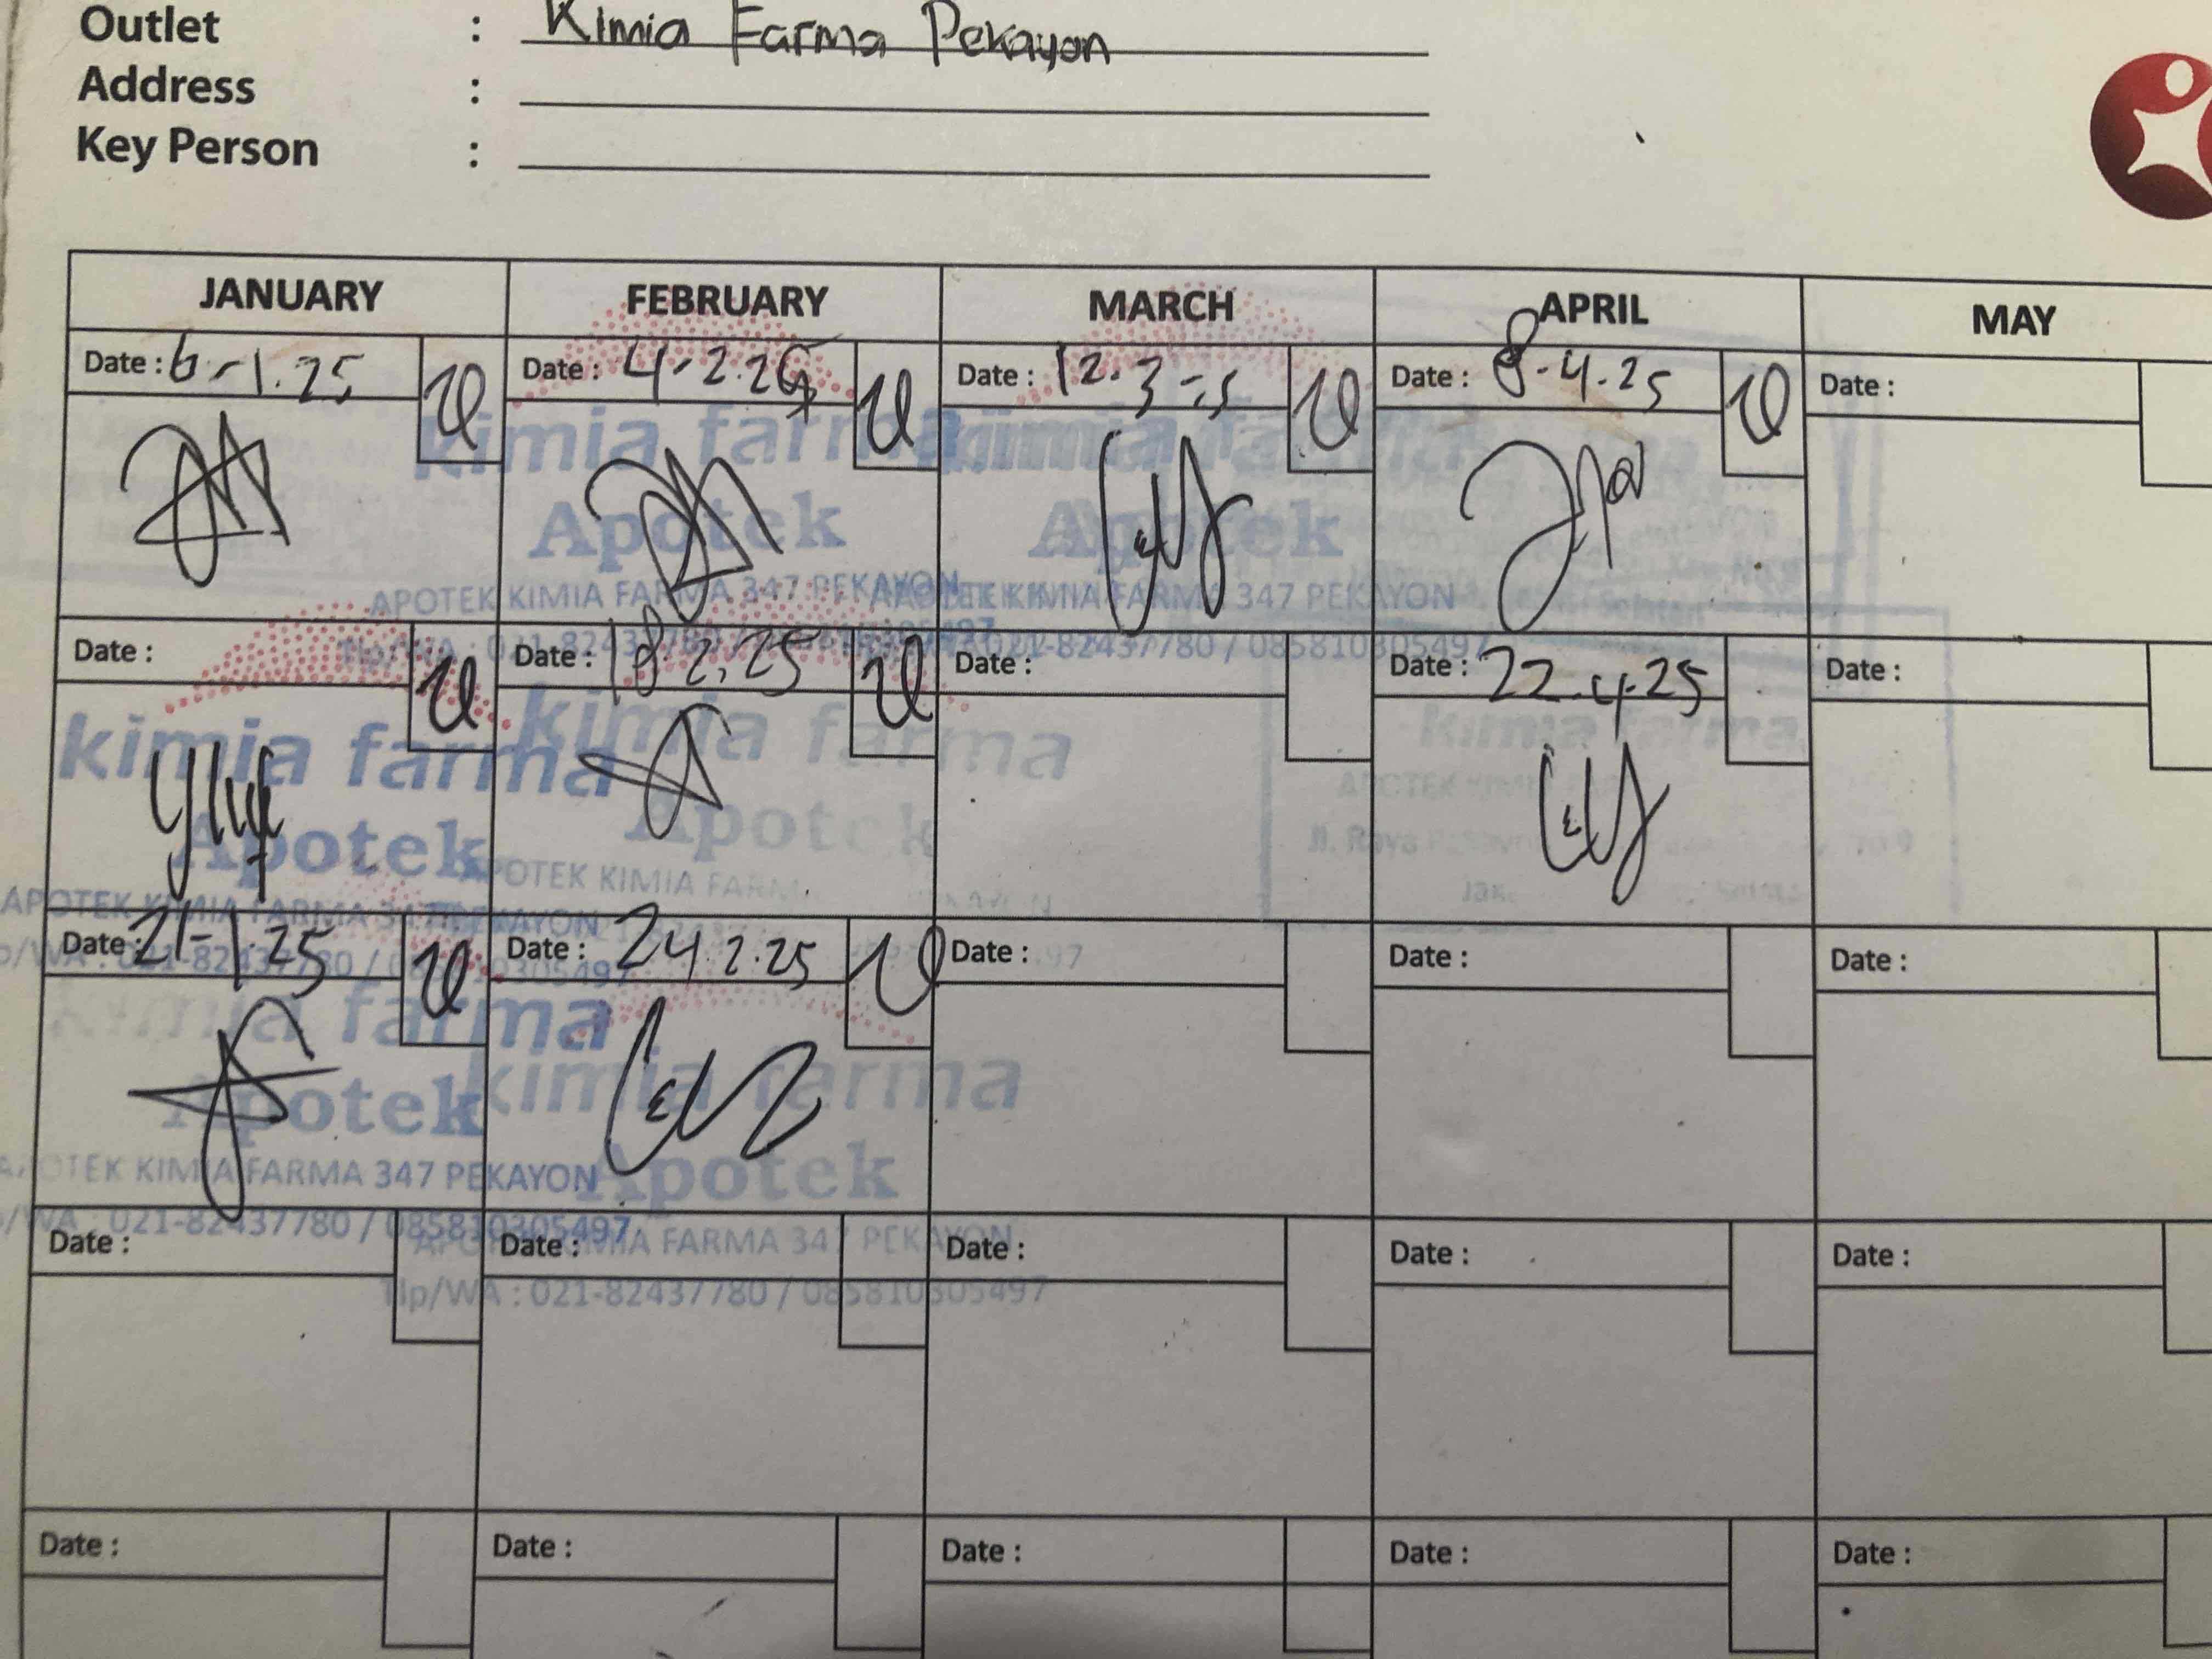 Outlet : Kimia Farma Pekayon
Address :
Key Person :
JANUARY FEBRUARY MARCH APRIL MAY
Date : 6-1.25 Date : 4-2.25 Date : 12.3 Date : 8-4.25 Date :
kimia farma kimia farma
Apotek Apotek
APOTEK KIMIA FARMA 347 PEKAYON APOTEK KIMIA FARMA 347 PEKAYON
Date : Date : 18.2.25 Date : Date : 22.4.25 Date :
021-82437780 / 085810305497
kimia farma kimia farma kimia farma
Apotek Apotek
APOTEK KIMIA FARMA 347 PEKAYON APOTEK KIMIA FARMA
Date : 21-1.25 Date : 24.2.25 Date : Date : Date :
/WA : 021-82437780 / 085810305497
kimia farma kimia farma
Apotek Apotek
APOTEK KIMIA FARMA 347 PEKAYON
/WA : 021-82437780 / 085810305497
Date : Date : Date : Date : Date :
KIMIA FARMA 347 PEKAYON
Tlp/WA : 021-82437780 / 085810305497
Date : Date : Date : Date : Date :